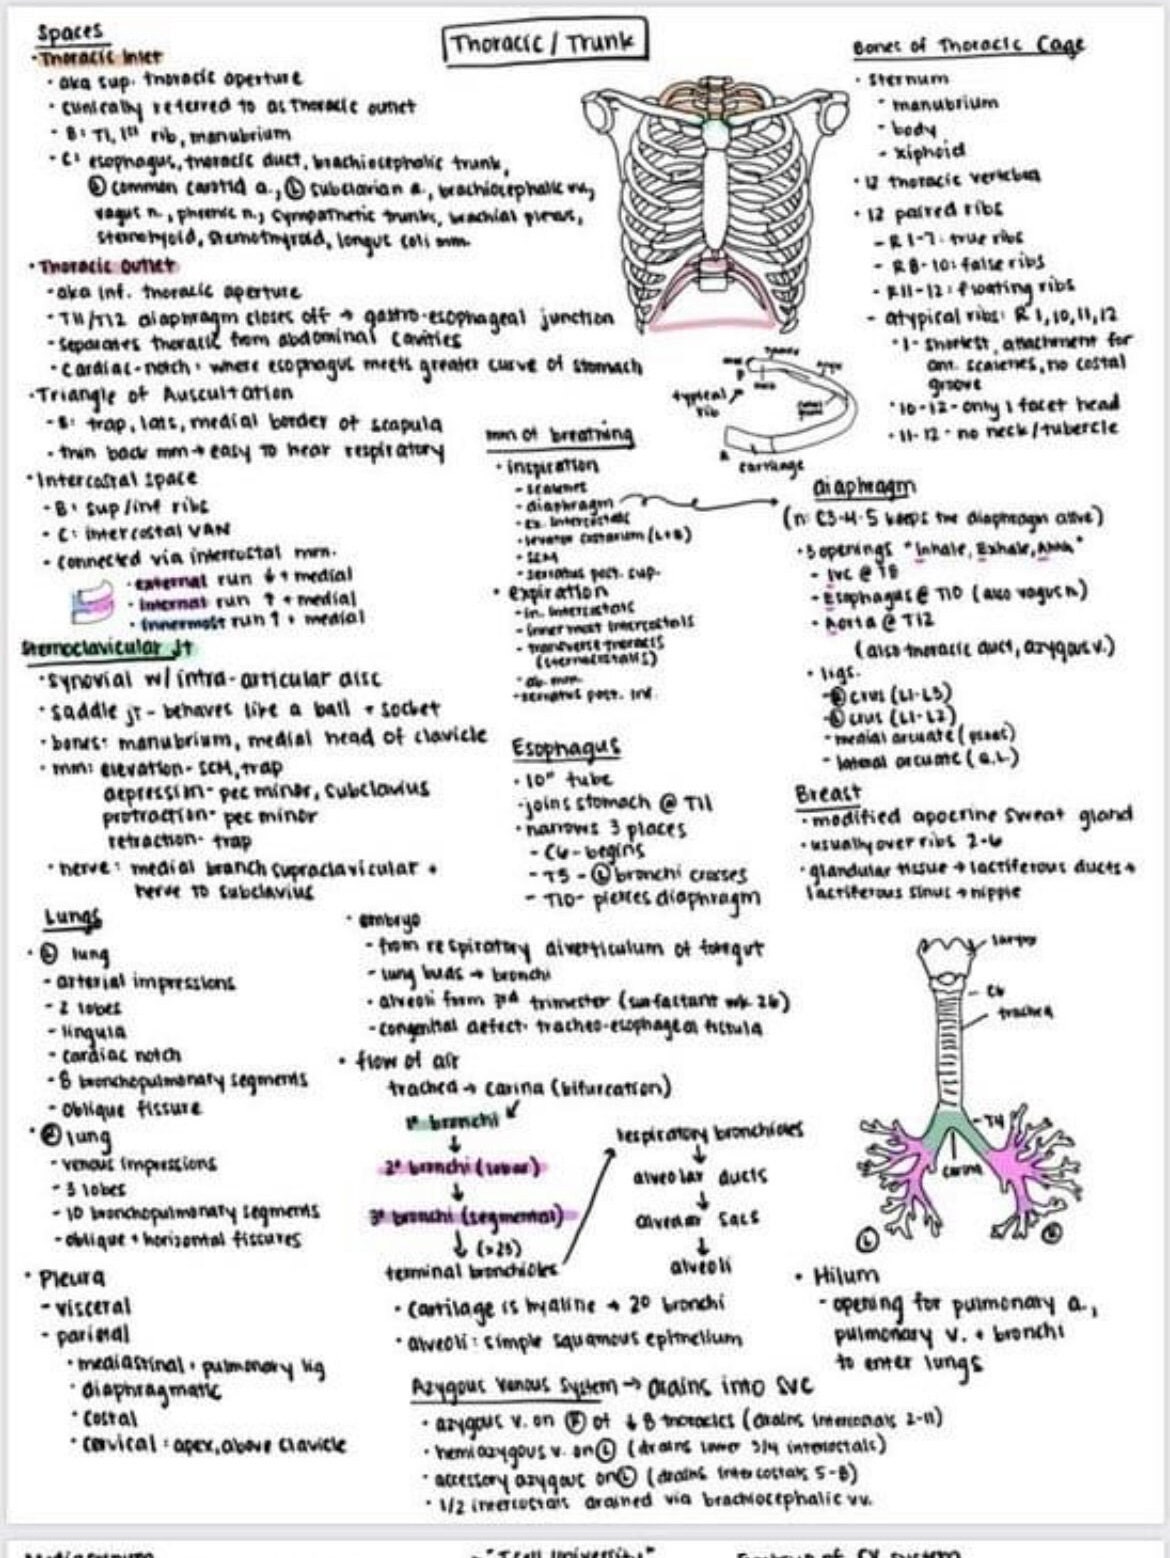 Thoracic / Trunk
Spaces
· Thoracic inlet
· aka sup. thoracic aperture
· clinically referred to as thoracic outlet
· B: T1, 1st rib, manubrium
· C: esophagus, thoracic duct, brachiocephalic trunk,
Ⓛ common carotid a., Ⓛ subclavian a., brachiocephalic vv,
vagus n., phrenic n., sympathetic trunks, brachial plexus,
sternohyoid, sternothyroid, longus coli mm.
· Thoracic outlet
- aka inf. thoracic aperture
- T11/T12 diaphragm closes off → gastro-esophageal junction
- separates thoracic from abdominal cavities
- cardiac-notch: where esophagus meets greater curve of stomach
· Triangle of Auscultation
- B: trap, lats, medial border of scapula
- thin back mm → easy to hear respiratory
· Intercostal space
- B: sup/inf ribs
- C: intercostal VAN
- connected via intercostal mm.
· external run ↓ + medial
· internal run ↑ + medial
· innermost run ↑ + medial
Sternoclavicular Jt
· synovial w/ intra-articular disc
· saddle jt - behaves like a ball + socket
· bones: manubrium, medial head of clavicle
· mm: elevation- SCM, trap
depression- pec minor, subclavius
protraction- pec minor
retraction- trap
· nerve: medial branch supraclavicular +
nerve to subclavius
Bones of Thoracic Cage
· sternum
· manubrium
- body
- xiphoid
· 12 thoracic vertebra
· 12 paired ribs
- R 1-7: true ribs
- R8-10: false ribs
- R11-12: floating ribs
- atypical ribs: R 1,10,11,12
· 1- shortest, attachment for
ant. scalenes, no costal
groove
· 10-12- only 1 facet head
· 11-12 - no neck/tubercle
typical
rib
cartilage
mm of breathing
· inspiration
- scalenes
- diaphragm
- ex. intercostals
- levator costarum (L+B)
- SCM
- serratus post. sup.
· expiration
- in. intercostals
- innermost intercostals
- transverse thoracis
(sternocostalis)
- ab. mm.
- serratus post. inf.
diaphragm
(n: C3-4-5 keeps the diaphragm alive)
· 3 openings "Inhale, Exhale, Ahhh"
- IVC @ T8
- Esophagus @ T10 (also vagus n)
- Aorta @ T12
(also thoracic duct, azygous v.)
· ligs.
- Ⓡ crus (L1-L3)
- Ⓛ crus (L1-L2)
- medial arcuate (psoas)
- lateral arcuate (Q.L)
Esophagus
· 10" tube
· joins stomach @ T11
· narrows 3 places
- C6- begins
- T5 - Ⓛ bronchi crosses
- T10- pierces diaphragm
Breast
· modified apocrine sweat gland
· usually over ribs 2-6
· glandular tissue → lactiferous ducts →
lactiferous sinus → nipple
Lungs
· Ⓛ lung
- arterial impressions
- 2 lobes
- lingula
- cardiac notch
- 8 bronchopulmonary segments
- oblique fissure
· Ⓡ lung
- venous impressions
- 3 lobes
- 10 bronchopulmonary segments
- oblique + horizontal fissures
· Pleura
- visceral
- parietal
· mediastinal + pulmonary lig
· diaphragmatic
· costal
· cervical: apex, above clavicle
· embryo
- from respiratory diverticulum of foregut
- lung buds → bronchi
- alveoli form 3rd trimester (surfactant wk 26)
- congenital defect- tracheo-esophageal fistula
· flow of air
trachea → carina (bifurcation)
↙
1° bronchi
↓
2° bronchi (lobar)
↓
3° bronchi (segmental)
↓ (>23)
terminal bronchioles
respiratory bronchioles
↓
alveolar ducts
↓
alveolar sacs
↓
alveoli
· cartilage is hyaline → 2° bronchi
· alveoli: simple squamous epithelium
larynx
C6
trachea
T4
carina
Ⓛ
Ⓡ
· Hilum
- opening for pulmonary a.,
pulmonary v. + bronchi
to enter lungs
Azygous Venous System → drains into SVC
· azygous v. on Ⓡ of ↓ 8 thoracics (drains intercostals 2-11)
· hemiazygous v. on Ⓛ (drains lower 3/4 intercostals)
· accessory azygous on Ⓛ (drains intercostals 5-8)
· 1/2 intercostals drained via brachiocephalic vv.
"Tcell University"